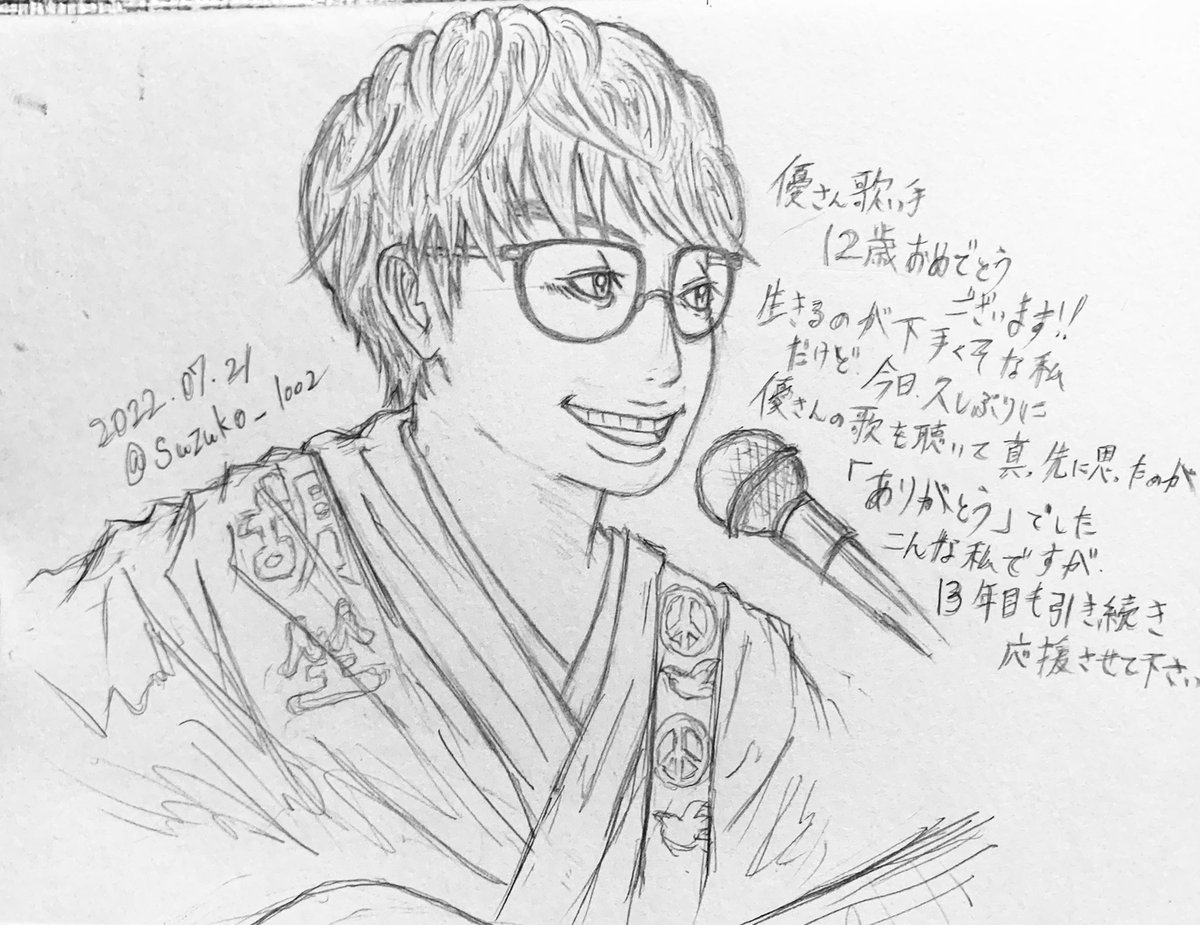 優さん歌い手
12歳おめでとう
ございます!!
生きるのが下手くそな私
だけど、今日、久しぶりに
優さんの歌を聴いて真っ先に思ったのが
「ありがとう」でした
こんな私ですが、
13年目も引き続き
応援させて下さい
2022.07.21
@Suzuko_1002